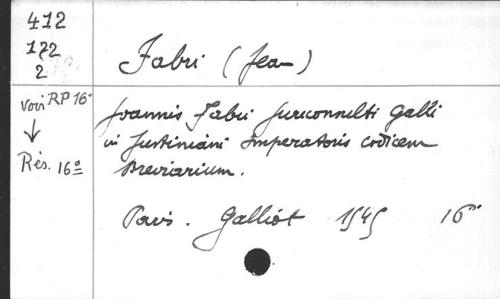 412
172
2
Fabri (Jean)
voir RP 16°
Rés. 16°
Joannis Fabri Jurconsulti Galli
in Justiniani Imperatoris codicem
Breviarium.
Paris. Galliot 1545 16°